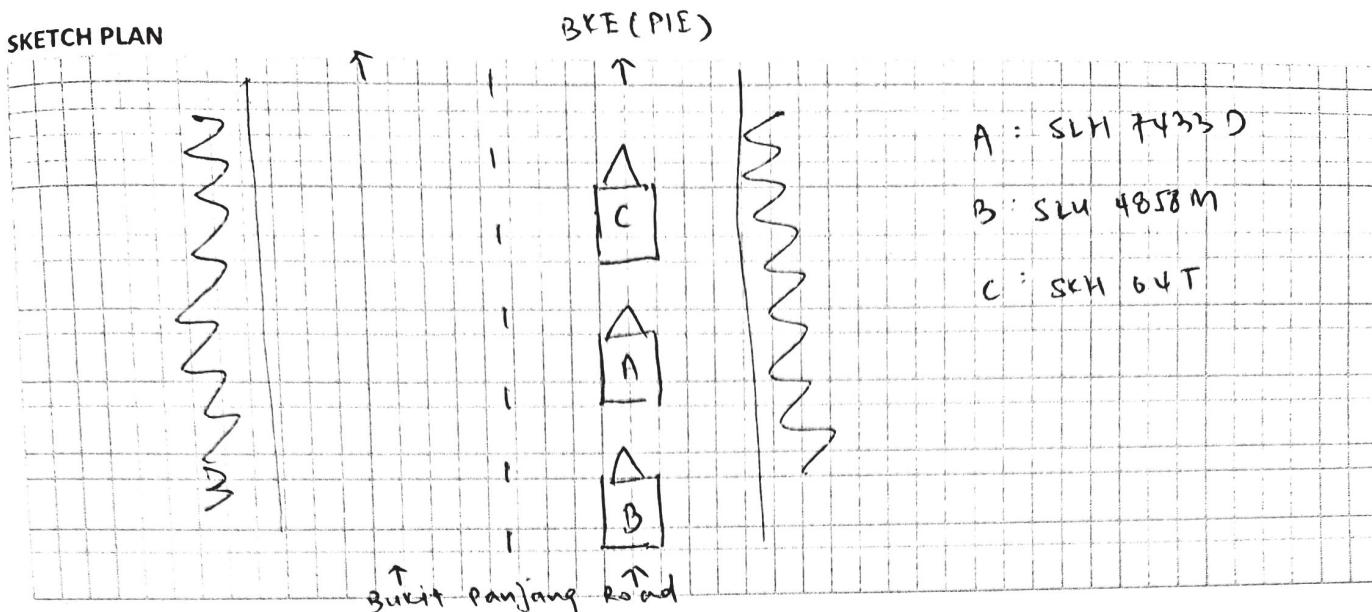 SKETCH PLAN
BKE (PIE)
A : SLH 7433D
B : SLU 4858M
C : SKH 64T
C
A
B
Bukit Panjang Road